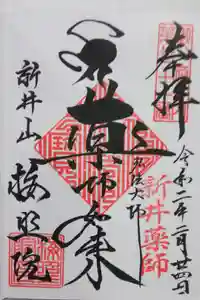 奉拝
令和二年二月廿四日
新井薬師
弘法大師
薬師如来
新井山
梅照院